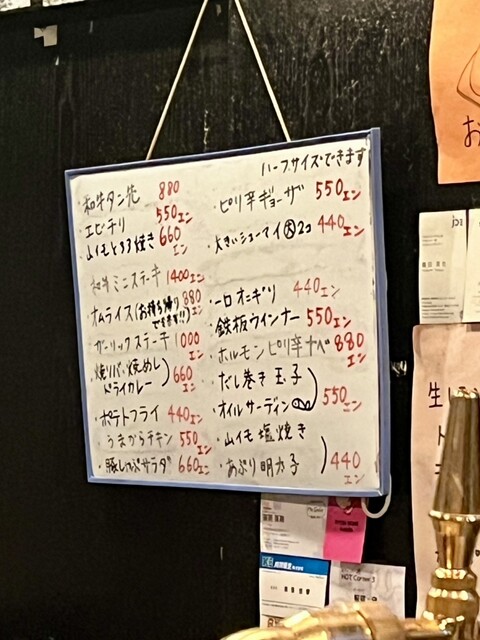 ハーフサイズできます
・和牛タン先 880
・エビチリ 550エン
・山イモとろろ焼き 660エン
・和牛ミニステーキ 1400エン
・オムライス(お持ち帰りできます!!) 880エン
・ガーリックステーキ 1000エン
・焼りバ、焼めし
・ドライカレー 660エン
・ポテトフライ 440エン
・うまからチキン 550エン
・豚しゃぶサラダ 660エン
・ピリ辛ギョーザ 550エン
・大きいシューマイ大2コ 440エン
・一口オニギリ 440エン
・鉄板ウインナー 550エン
・ホルモンピリ辛ナベ 880エン
・だし巻き玉子
・オイルサーディン 550エン
・山イモ塩焼き
・あぶり明太子 440エン
お
生
HOT Corner 3